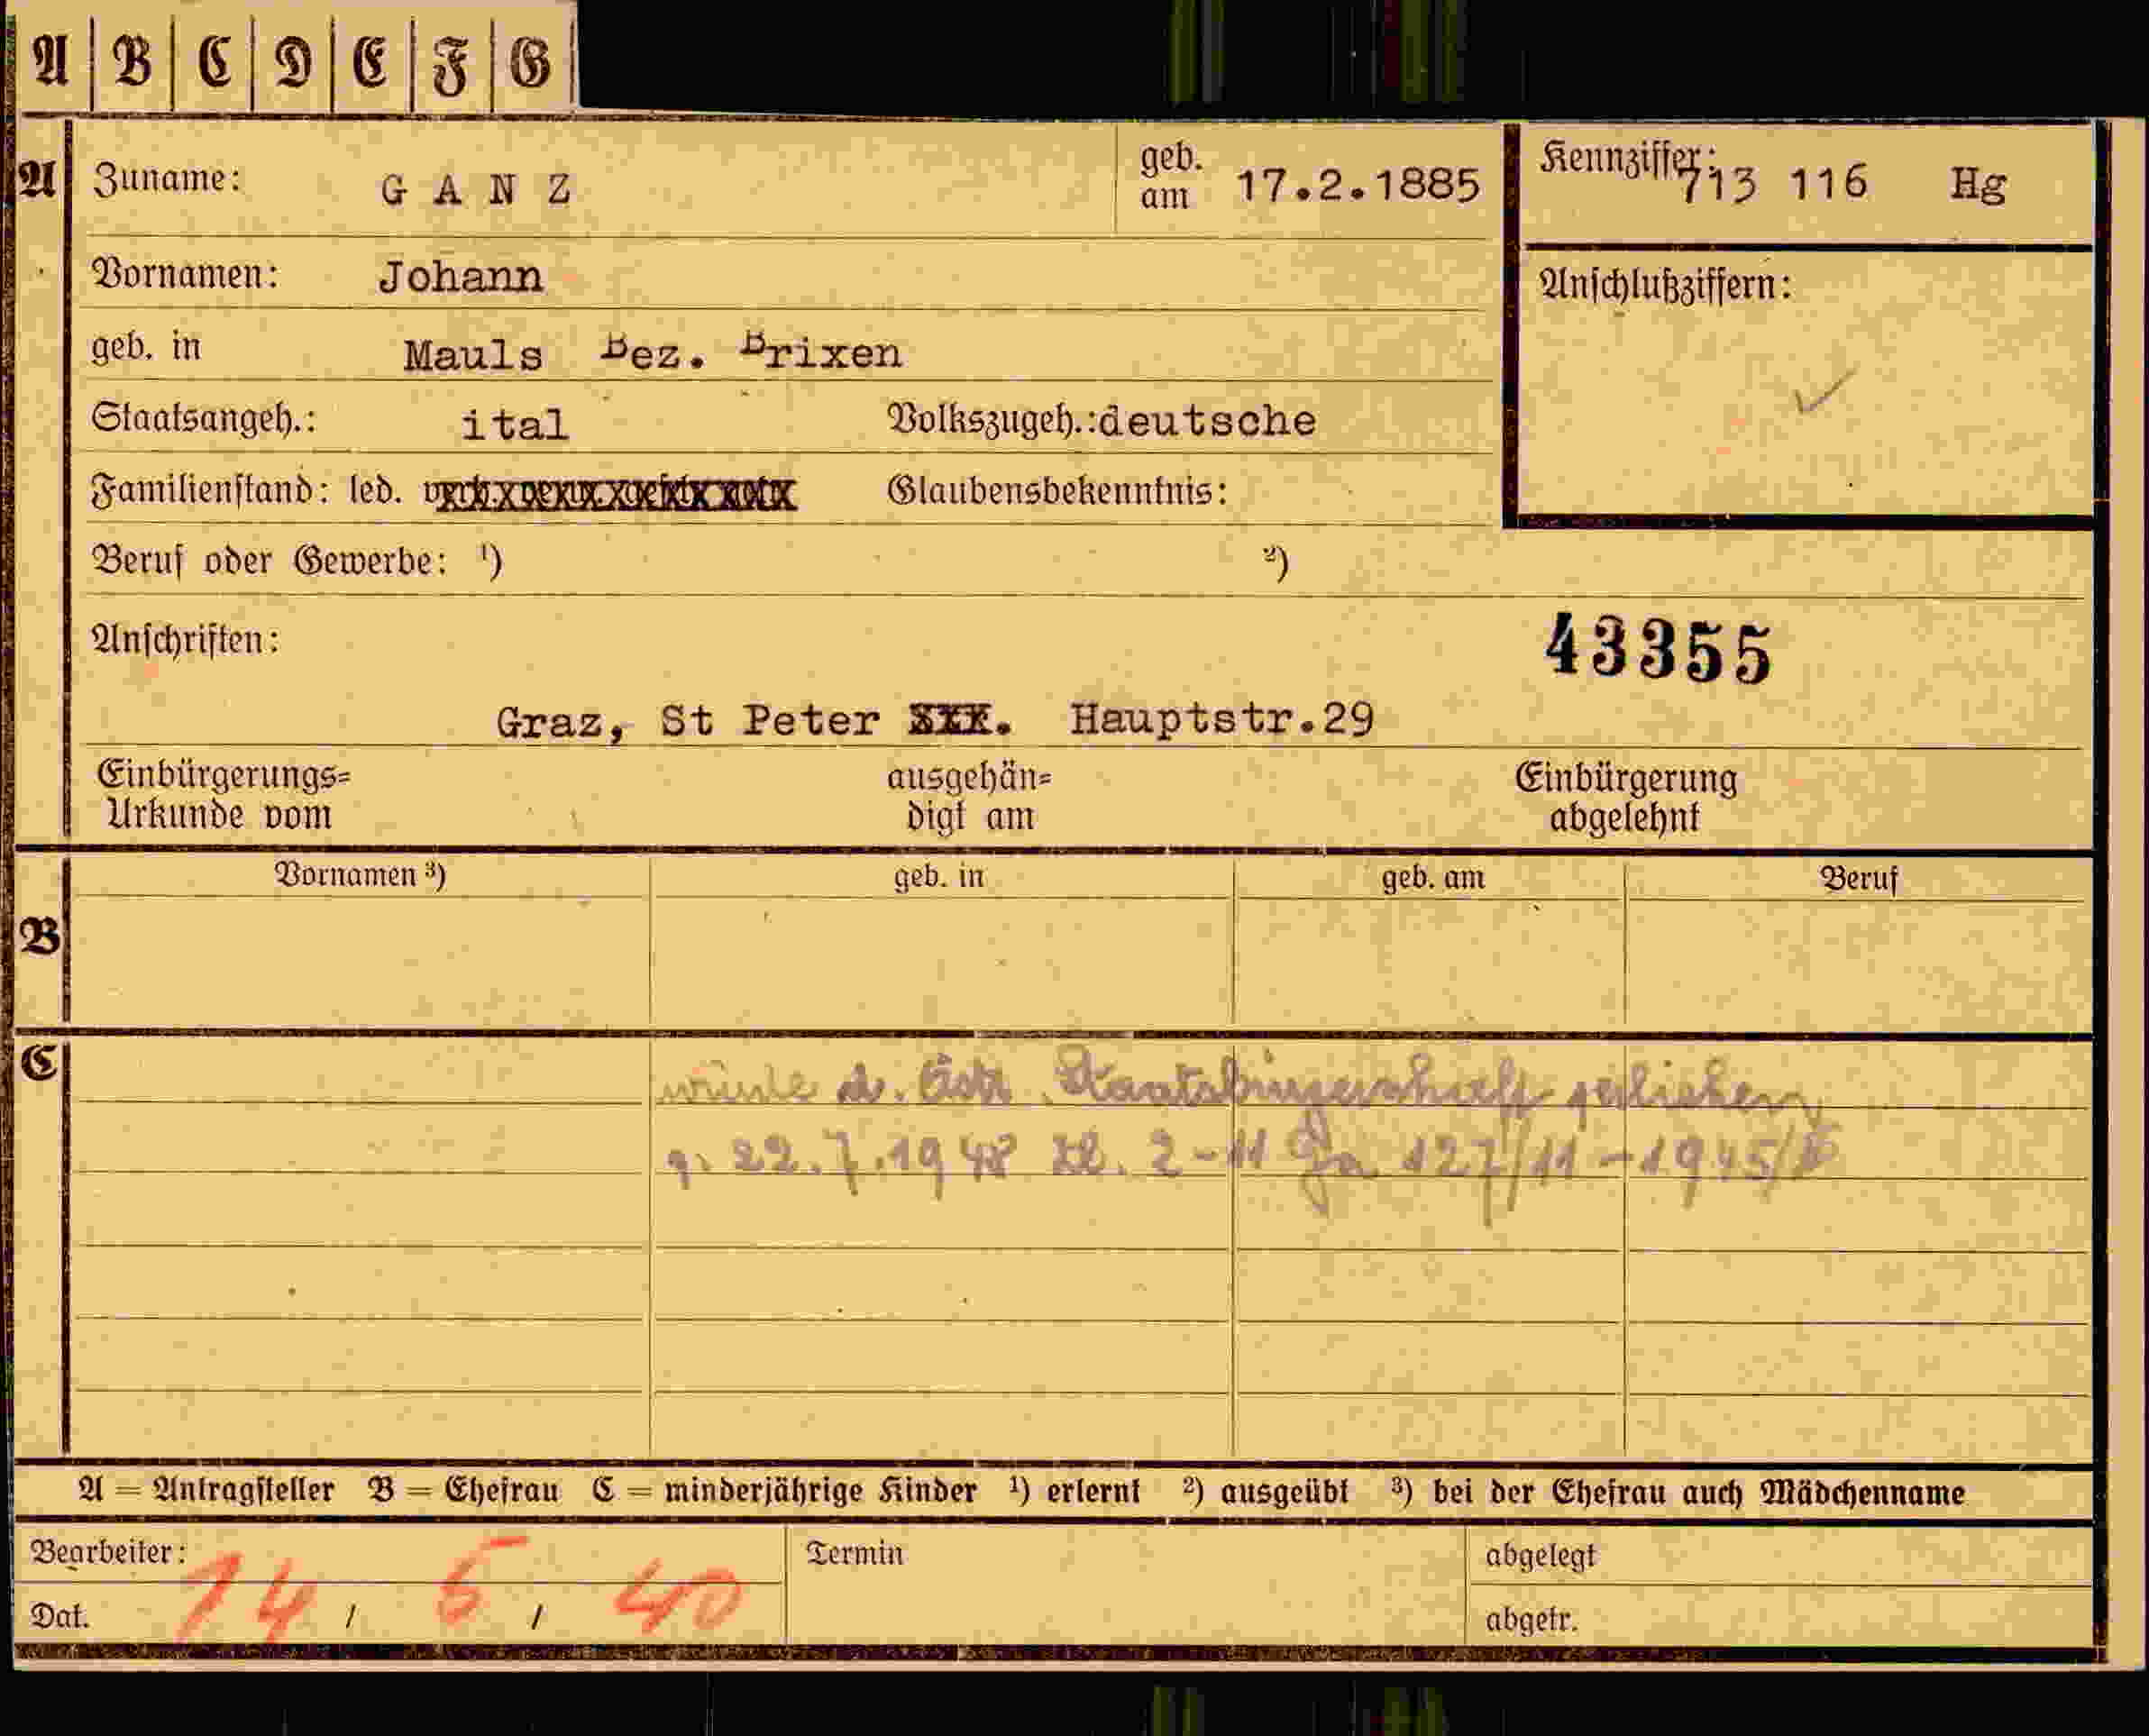 A B C D E F G
A Zuname: GANZ geb. am 17.2.1885 Kennziffer: 713 116 Hg
Vornamen: Johann Anschlußziffern:
geb. in Mauls Bez. Brixen
Staatsangeh.: ital Volkszugeh.: deutsche
Familienstand: led. Glaubensbekenntnis:
Beruf oder Gewerbe: ¹) ²)
Anschriften: 43355
Graz, St Peter Hauptstr.29
Einbürgerungs= ausgehän= Einbürgerung
Urkunde vom digt am abgelehnt
Vornamen ³) geb. in geb. am Beruf
B
C wurde d. Staatsbürgerschaft
22.7.1948 Zl. 2-11 Ga 127/11-1945/
A = Antragsteller B = Ehefrau C = minderjährige Kinder ¹) erlernt ²) ausgeübt ³) bei der Ehefrau auch Mädchenname
Bearbeiter: Termin abgelegt
Dat. 14 / 5 / 40 abgetr.